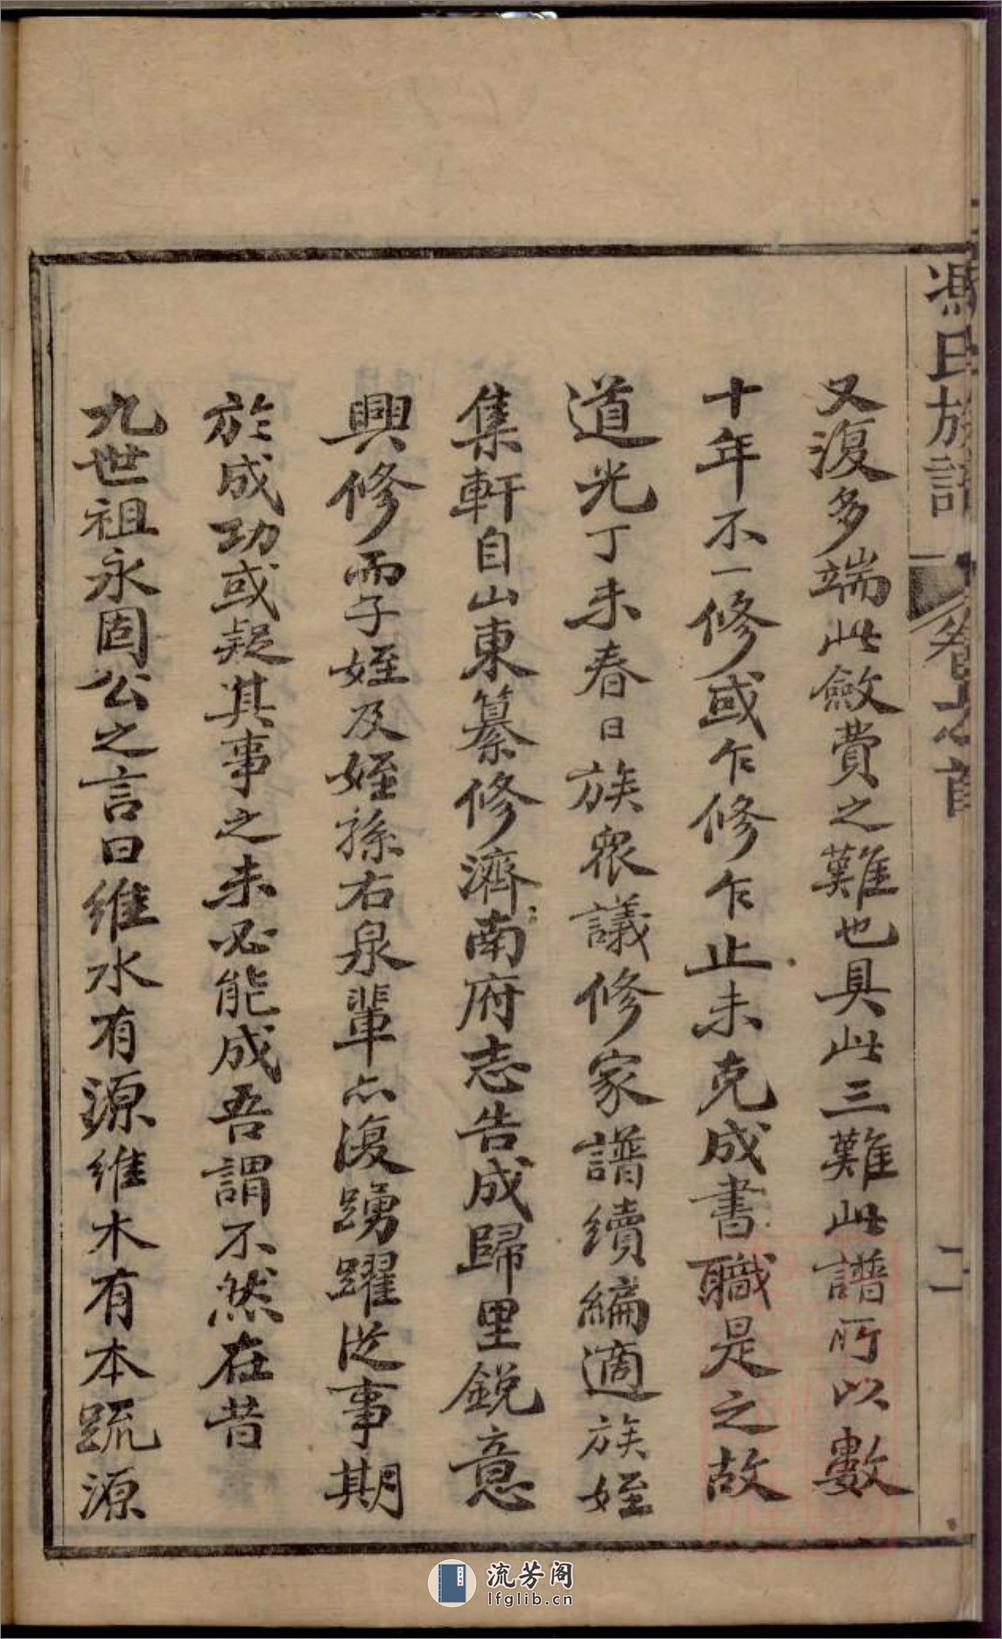 馮氏族譜 卷之首 二
又復多端此斂費之難也具此三難此譜所以數
十年不一修或乍修乍止未克成書職是之故
道光丁未春日族眾議修家譜續編適族姪
集軒自山東纂修濟南府志告成歸里銳意
興修而子姪及姪孫右泉輩亦復踴躍從事期
於成功或疑其事之未必能成吾謂不然在昔
九世祖永固公之言曰維水有源維木有本疏源
流芳阁
lfglib.cn